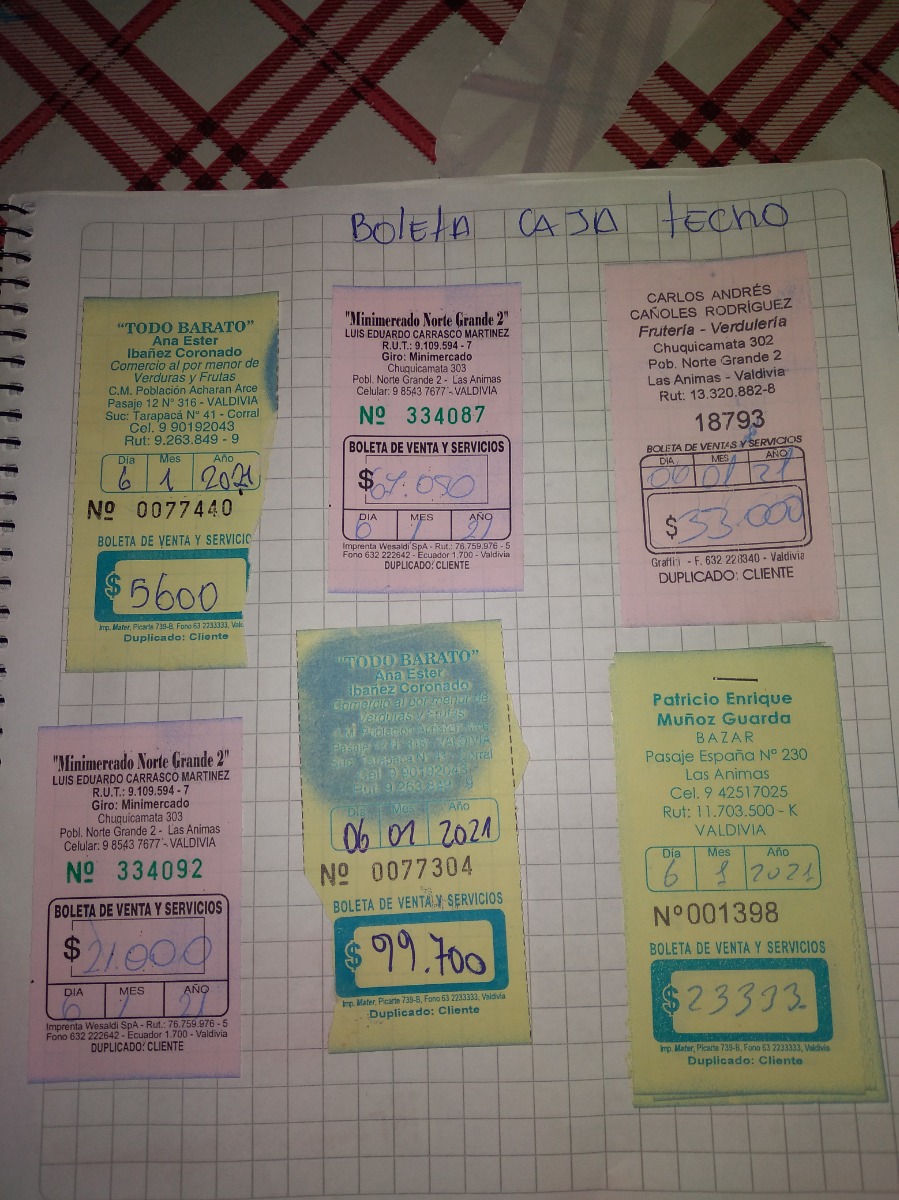 BOLETA CAJA TECHO
"TODO BARATO"
Ana Ester
Ibañez Coronado
Comercio al por menor de
Verduras y Frutas
C.M. Población Acharan Arce
Pasaje 12 N° 316 - VALDIVIA
Suc: Tarapacá N° 41 - Corral
Cel. 9 90192043
Rut: 9.263.849 - 9
Día Mes Año
6 1 2021
Nº 0077440
BOLETA DE VENTA Y SERVICIO
$ 5600
Imp. Mater, Picarte 739-B, Fono 63 2233333, Vald
Duplicado: Cliente
"Minimercado Norte Grande 2"
LUIS EDUARDO CARRASCO MARTINEZ
R.U.T.: 9.109.594 - 7
Giro: Minimercado
Chuquicamata 303
Pobl. Norte Grande 2 - Las Animas
Celular: 9 8543 7677 - VALDIVIA
Nº 334087
BOLETA DE VENTA Y SERVICIOS
$
DIA MES AÑO
6 1 21
Imprenta Wesaldi SpA - Rut.: 76.759.976 - 5
Fono 632 222642 - Ecuador 1.700 - Valdivia
DUPLICADO: CLIENTE
CARLOS ANDRÉS
CAÑOLES RODRÍGUEZ
Frutería - Verdulería
Chuquicamata 302
Pob. Norte Grande 2
Las Animas - Valdivia
Rut: 13.320.882-8
18793
BOLETA DE VENTAS Y SERVICIOS
DIA MES AÑO
01 21
$ 33.000
Graffiti - F. 632 228340 - Valdivia
DUPLICADO: CLIENTE
"Minimercado Norte Grande 2"
LUIS EDUARDO CARRASCO MARTINEZ
R.U.T.: 9.109.594 - 7
Giro: Minimercado
Chuquicamata 303
Pobl. Norte Grande 2 - Las Animas
Celular: 9 8543 7677 - VALDIVIA
Nº 334092
BOLETA DE VENTA Y SERVICIOS
$ 21.000
DIA MES AÑO
6 1 21
Imprenta Wesaldi SpA - Rut.: 76.759.976 - 5
Fono 632 222642 - Ecuador 1.700 - Valdivia
DUPLICADO: CLIENTE
"TODO BARATO"
Ana Ester
Ibañez Coronado
Comercio al por menor de
Verduras y Frutas
C.M. Población Acharan Arce
Pasaje 12 N° 316 - VALDIVIA
Suc: Tarapacá N° 41 - Corral
Cel. 9 90192043
Rut: 9.263.849 - 9
Día Mes Año
06 01 2021
Nº 0077304
BOLETA DE VENTA Y SERVICIOS
$ 99.700
Imp. Mater, Picarte 739-B, Fono 63 2233333, Valdivia
Duplicado: Cliente
Patricio Enrique
Muñoz Guarda
BAZAR
Pasaje España Nº 230
Las Animas
Cel. 9 42517025
Rut: 11.703.500 - K
VALDIVIA
Día Mes Año
6 1 2021
Nº 001398
BOLETA DE VENTA Y SERVICIOS
$ 23333
Imp. Mater, Picarte 739-B, Fono 63 2233333, Valdivia
Duplicado: Cliente